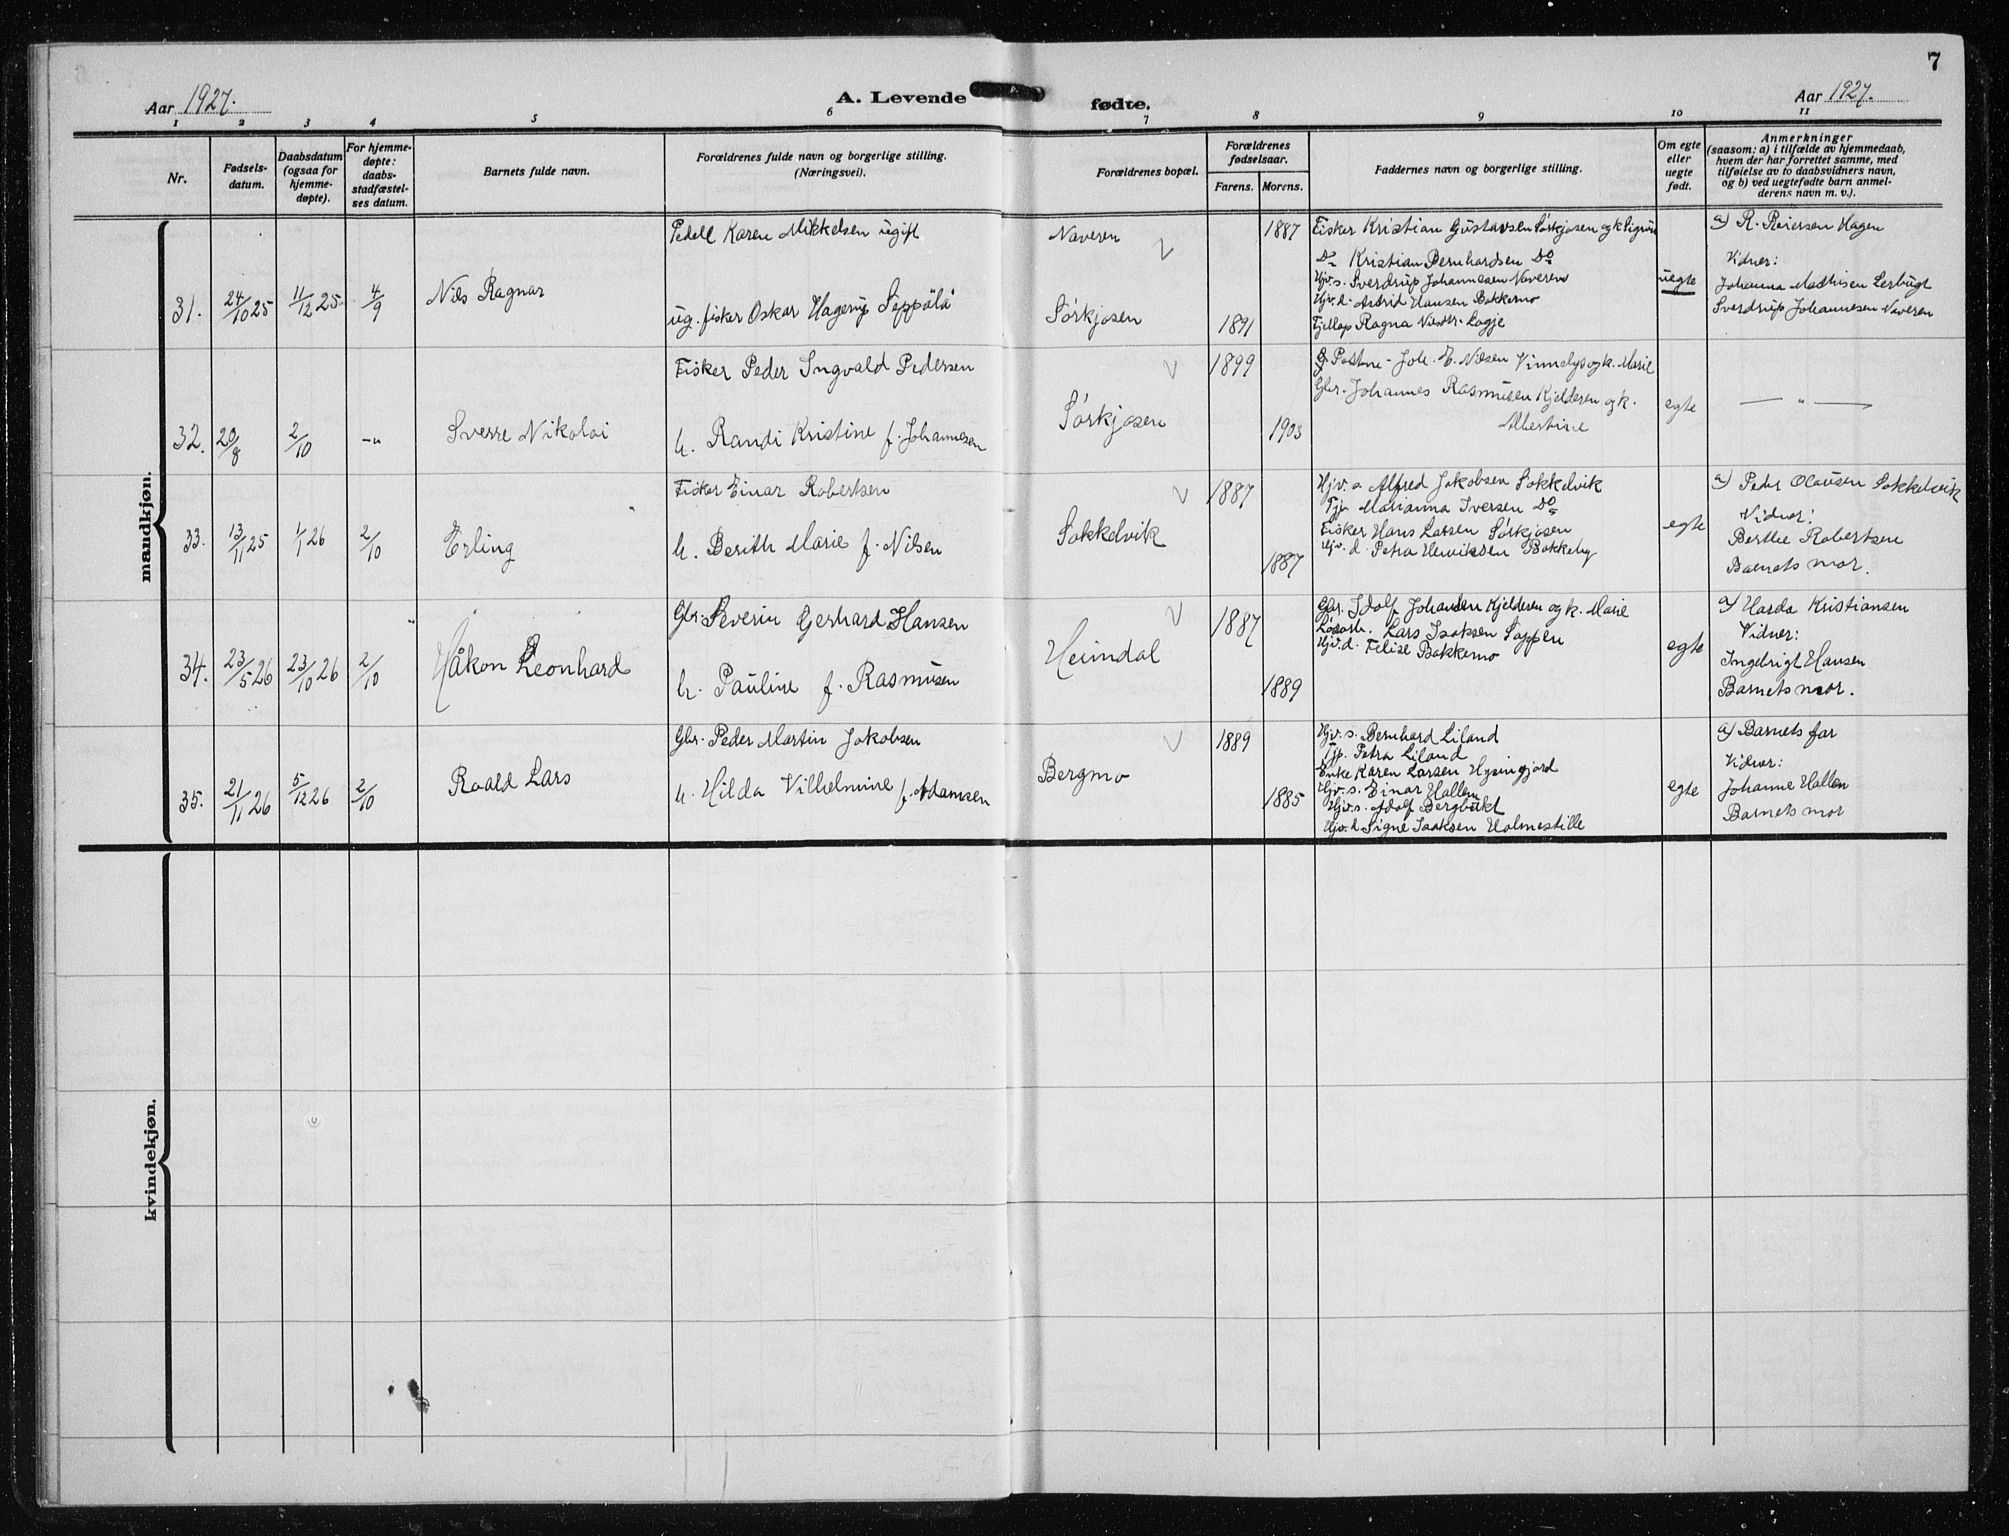 7
Aar 1927.
A. Levende fødte.
Aar 1927.
1 2 3 4 5 6 7 8 9 10 11
Nr.
Fødsels-
datum.
Daabsdatum
(ogsaa for
hjemme-
døpte).
For hjemme-
døpte:
daabs-
stadfæstel-
ses datum.
Barnets fulde navn.
Forældrenes fulde navn og borgerlige stilling.
(Næringsvei).
Forældrenes bopæl.
Forældrenes
fødselsaar.
Farens. Morens.
Faddernes navn og borgerlige stilling.
Om egte
eller
uegte
født.
Anmerkninger
(saasom: a) i tilfælde av hjemmedaab,
hvem der har forrettet samme, med
tilføielse av to daabsvidners navn,
og b) ved uegtefødte barn anmel-
derens navn m. v.).
mandkjøn.
31. 24/10 25 11/12 25 4/9
Nils Ragnar
Pedell Karen Mikkelsen ugift
ug. fisker Oskar Hagerup Seppälä
Naveren
Sörkjosen
1887
1891
Fisker Kristian Gustavsen Sörkjosen og k. Sigrun
Do Kristian Bernhardsen Do
Hjv. s. Sverdrup Johannesen Naveren
Hjv. d. Astrid Hansen Bakkemo
Fjellap Ragna Nilsdtr. Logje
uegte
a) R. Reiersen Hagen
Vidner:
Johanna Mathisen Lerbugt
Sverdrup Johannesen Naveren
32. 20/8 2/10 -"-
Sverre Nikolai
Fisker Peder Ingvald Pedersen
h. Randi Kristine f. Johannesen
Sörkjosen
1899
1903
Joh. E. Nilsen Vinnelys og k. Marie
Gbr. Johannes Rasmusen Kjelderen og k.
Albertine
egte
— " —
33. 13/11 25 1/1 26 2/10
Erling
Fisker Einar Robertsen
h. Berith Marie f. Nilsen
Sokkelvik
1887
1887
Hjv. s. Alfred Jakobsen Sokkelvik
Tjp. Marianna Iversen Do
Fisker Hans Larsen Sörkjosen
Hjv. d. Petra Henriksen Bakkeby
egte
a) Peder Olausen Sokkelvik
Vidner:
Berthe Robertsen
Barnets mor.
34. 23/5 26 23/10 26 2/10
Håkon Leonhard
Gbr. Severin Gerhard Hansen
h. Pauline f. Rasmusen
Heimdal
1887
1889
Gbr. Idolf Johansen Kjelderen og k. Marie
Løsarb. Lars Isaksen Sappen
Hjv. d. Felise Bakkemo
egte
a) Harda Kristiansen
Vidner:
Ingebrigt Hansen
Barnets mor.
35. 21/11 26 5/12 26 2/10
Roald Lars
Gbr. Peder Martin Jakobsen
h. Hilda Vilhelmine f. Adamsen
Bergmo
1889
1885
Hjv. s. Bernhard Liland
Tjp. Petra Liland
Enke Karen Larsen Hysingjord
Hjv. s. Einar Hallen
Hjv. s. Adolf Bergbukt
Hjv. d. Signe Isaksen Holmestille
egte
a) Barnets far
Vidner:
Johanne Hallen
Barnets mor
kvindekjøn.